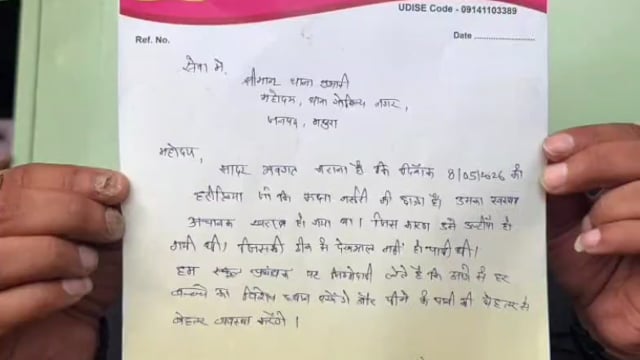 UDISE Code - 09141103389
Ref. No.
Date ........................
सेवा में,
श्रीमान थाना प्रभारी
महोदय, थाना गोविन्द नगर,
जनपद, मथुरा
महोदय,
सादर अवगत कराना है कि दिनाँक 8/05/2026 को
जो कि कक्षा नर्सरी की छात्रा है। उसका स्वास्थ्य
अचानक खराब हो गया था। जिस कारण उसे उल्टीयाँ हो
गयी थी। जिसकी ठीक से देखभाल नहीं हो पायी थी।
हम स्कूल प्रबंधक पर जिम्मेदारी लेते है कि आगे से हर
बच्चे का विशेष ध्यान रखेंगे और पीने के पानी की बेहतर से
बेहतर व्यवस्था करेंगे।